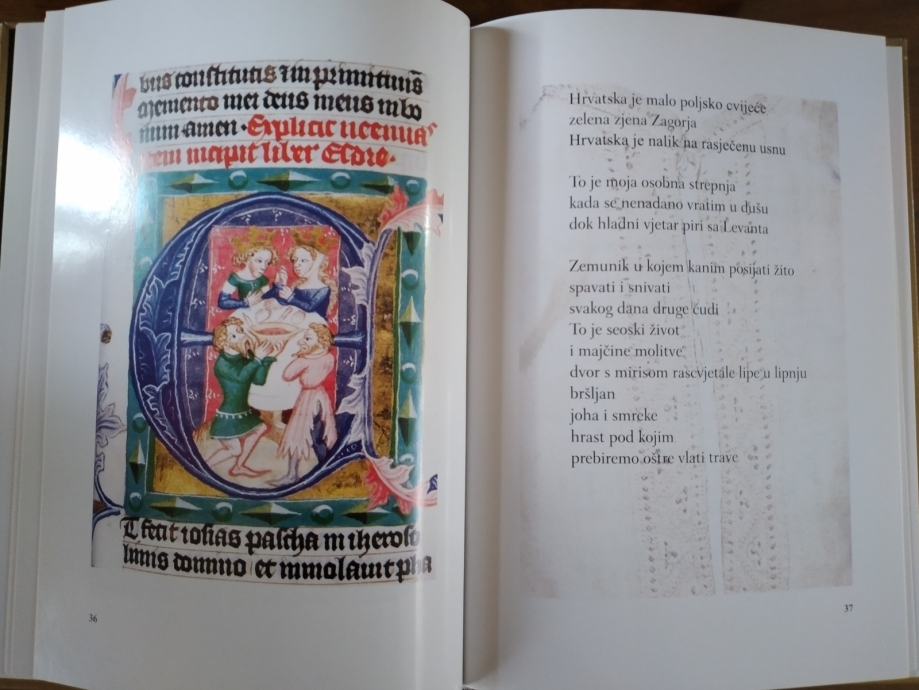 bus constitutis ⁊ in primitiuis
Memento mei deus meus in bo
num amen. Explicit neemias
incipit liber Esdre.
Et fecit iosias pascha in iheroso
lumis domino et immolauit pha
36
Hrvatska je malo poljsko cvijeće
zelena zjena Zagorja
Hrvatska je nalik na rasječenu usnu
To je moja osobna strepnja
kada se nenadano vratim u dušu
dok hladni vjetar piri sa Levanta
Zemunik u kojem kanim posijati žito
spavati i snivati
svakog dana druge ćudi
To je seoski život
i majčine molitve
dvor s mirisom rascvjetale lipe u lipnju
bršljan
joha i smreke
hrast pod kojim
prebiremo oštre vlati trave
37